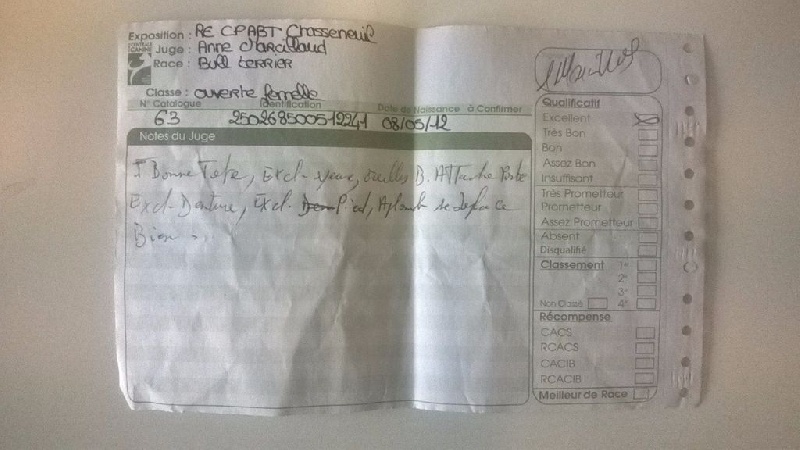 Exposition : RE CPABT Chasseneuil
CENTRALE CANINE
Juge : Anne
Race : Bull terrier
Classe : ouverte femelle
N° Catalogue Identification Date de Naissance à Confirmer
63 250268500512241 08/05/12
Notes du Juge
T Bonne Tete, Excl. yeux, oreilles B. Attache
Excl. Denture, Excl. Pied, se deplace
Bien.
Qualificatif
Excellent
Très Bon
Bon
Assez Bon
Insuffisant
Très Prometteur
Prometteur
Assez Prometteur
Absent
Disqualifié
Classement 1er
2e
3e
Non Classé 4e
Récompense
CACS
RCACS
CACIB
RCACIB
Meilleur de Race